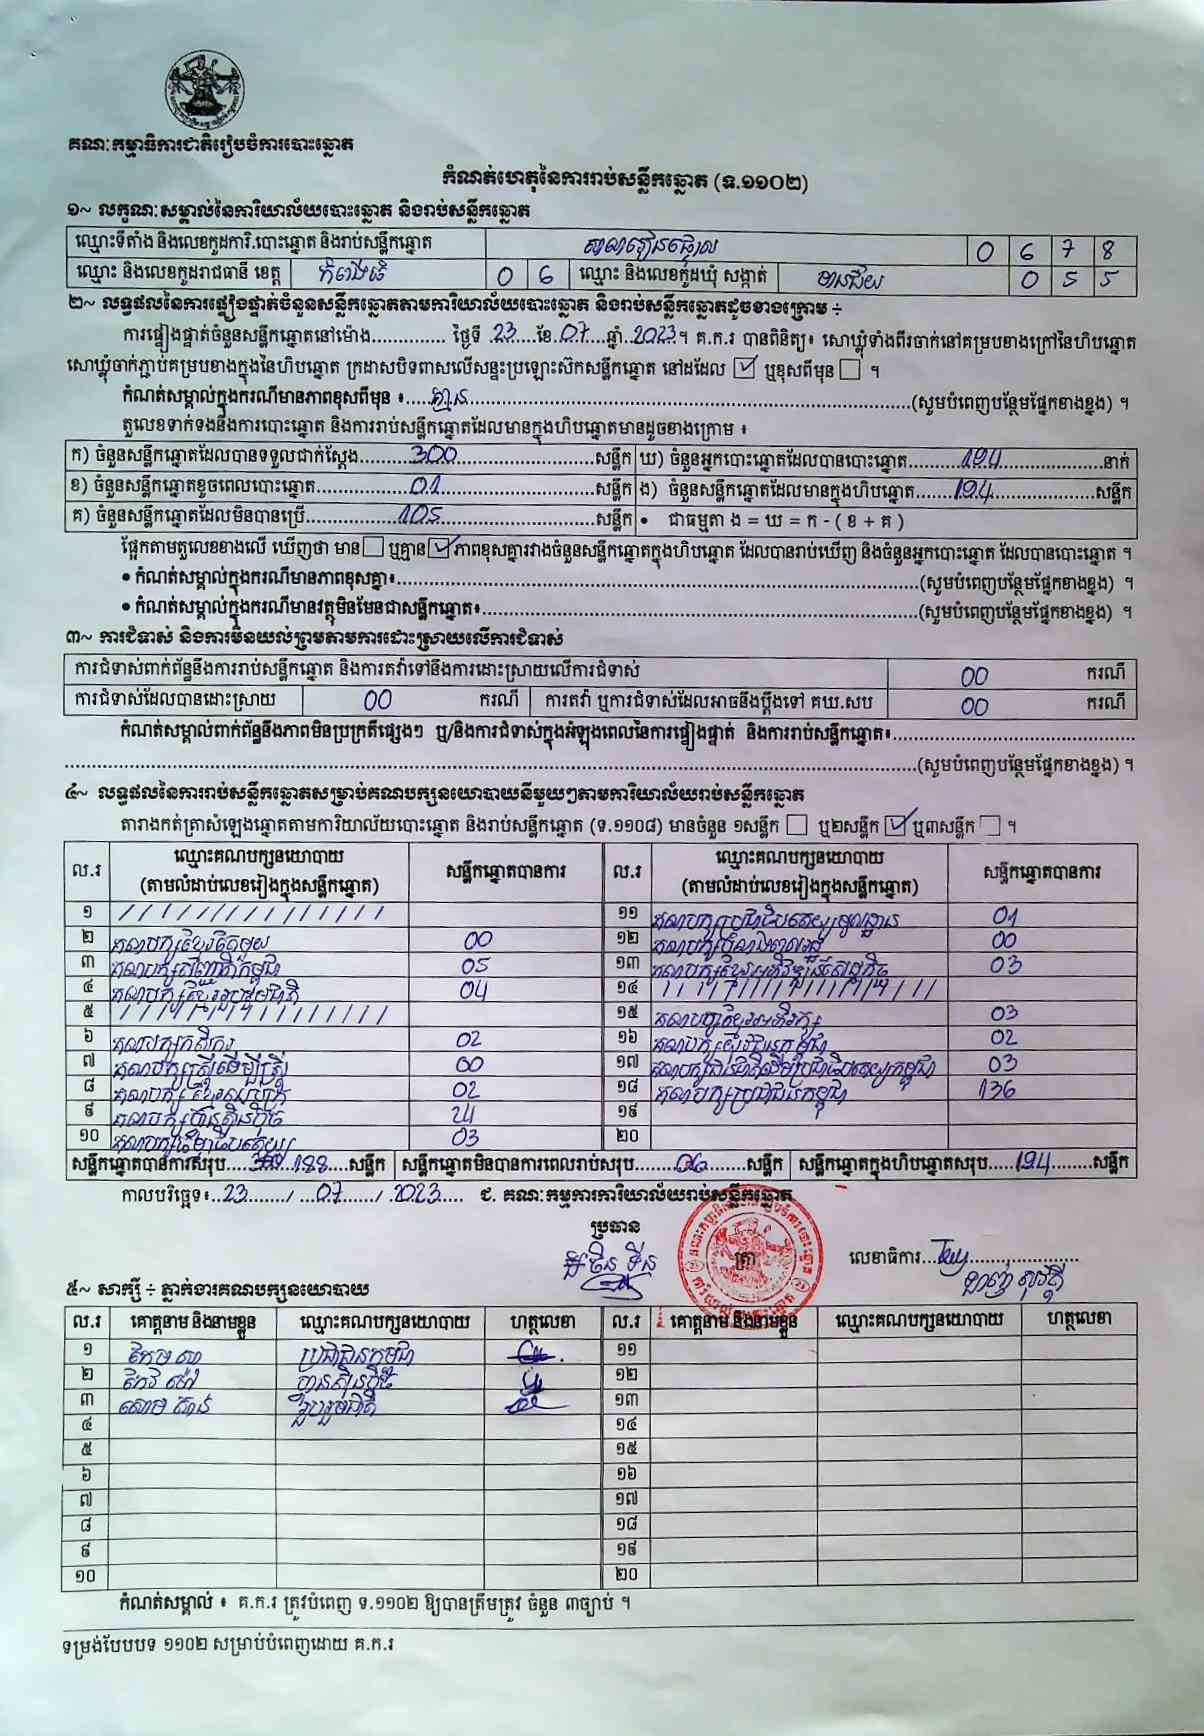 គណៈកម្មាធិការជាតិរៀបចំការបោះឆ្នោត
កំណត់ហេតុនៃការរាប់សន្លឹកឆ្នោត (ទ.១១០២)
១~ លក្ខណៈសម្គាល់នៃការិយាល័យបោះឆ្នោត និងរាប់សន្លឹកឆ្នោត
ឈ្មោះទីតាំង និងលេខកូដការិ.បោះឆ្នោត និងរាប់សន្លឹកឆ្នោត 0 6 7 8
ឈ្មោះ និងលេខកូដរាជធានី ខេត្ត កំពង់ធំ 0 6 ឈ្មោះ និងលេខកូដឃុំ សង្កាត់ មានជ័យ 0 5 5
២~ លទ្ធផលនៃការផ្ទៀងផ្ទាត់ចំនួនសន្លឹកឆ្នោតតាមការិយាល័យបោះឆ្នោត និងរាប់សន្លឹកឆ្នោតដូចខាងក្រោម ÷
ការផ្ទៀងផ្ទាត់ចំនួនសន្លឹកឆ្នោតនៅម៉ោង............... ថ្ងៃទី .23....ខែ.07....ឆ្នាំ..2023.។ គ.ក.រ បានពិនិត្យ៖ សោឃ្លុំទាំងពីរចាក់នៅគម្របខាងក្រៅនៃហិបឆ្នោត
សោឃ្លុំចាក់ភ្ជាប់គម្របខាងក្នុងនៃហិបឆ្នោត ក្រដាសបិទពាសលើសន្ទះប្រឡោះស៊កសន្លឹកឆ្នោត នៅដដែល ☑ ឬខុសពីមុន ☐ ។
កំណត់សម្គាល់ក្នុងករណីមានភាពខុសពីមុន ៖.....គ្មាន.....(សូមបំពេញបន្ថែមផ្នែកខាងខ្នង) ។
តួលេខទាក់ទងនឹងការបោះឆ្នោត និងការរាប់សន្លឹកឆ្នោតដែលមានក្នុងហិបឆ្នោតមានដូចខាងក្រោម ៖
ក) ចំនួនសន្លឹកឆ្នោតដែលបានទទួលជាក់ស្តែង.....300.....សន្លឹក ឃ) ចំនួនអ្នកបោះឆ្នោតដែលបានបោះឆ្នោត.....194.....នាក់
ខ) ចំនួនសន្លឹកឆ្នោតខូចពេលបោះឆ្នោត.....01.....សន្លឹក ង) ចំនួនសន្លឹកឆ្នោតដែលមានក្នុងហិបឆ្នោត.....194.....សន្លឹក
គ) ចំនួនសន្លឹកឆ្នោតដែលមិនបានប្រើ.....105.....សន្លឹក • ជាធម្មតា ង = ឃ = ក - ( ខ + គ )
ផ្អែកតាមតួលេខខាងលើ ឃើញថា មាន ☐ ឬគ្មាន ☑ ភាពខុសគ្នារវាងចំនួនសន្លឹកឆ្នោតក្នុងហិបឆ្នោត ដែលបានរាប់ឃើញ និងចំនួនអ្នកបោះឆ្នោត ដែលបានបោះឆ្នោត ។
• កំណត់សម្គាល់ក្នុងករណីមានភាពខុសគ្នា៖.....(សូមបំពេញបន្ថែមផ្នែកខាងខ្នង) ។
• កំណត់សម្គាល់ក្នុងករណីមានវត្ថុមិនមែនជាសន្លឹកឆ្នោត៖.....(សូមបំពេញបន្ថែមផ្នែកខាងខ្នង) ។
៣~ ការជំទាស់ និងការមិនយល់ព្រមតាមការដោះស្រាយលើការជំទាស់
ការជំទាស់ពាក់ព័ន្ធនឹងការរាប់សន្លឹកឆ្នោត និងការតវ៉ាទៅនឹងការដោះស្រាយលើការជំទាស់ 00 ករណី
ការជំទាស់ដែលបានដោះស្រាយ 00 ករណី ការតវ៉ា ឬការជំទាស់ដែលអាចនឹងប្តឹងទៅ គឃ.សប 00 ករណី
កំណត់សម្គាល់ពាក់ព័ន្ធនឹងភាពមិនប្រក្រតីផ្សេងៗ ឬ/និងការជំទាស់ក្នុងអំឡុងពេលនៃការផ្ទៀងផ្ទាត់ និងការរាប់សន្លឹកឆ្នោត៖.....
.....(សូមបំពេញបន្ថែមផ្នែកខាងខ្នង) ។
៤~ លទ្ធផលនៃការរាប់សន្លឹកឆ្នោតសម្រាប់គណបក្សនយោបាយនីមួយៗតាមការិយាល័យរាប់សន្លឹកឆ្នោត
តារាងកត់ត្រាសំឡេងឆ្នោតតាមការិយាល័យបោះឆ្នោត និងរាប់សន្លឹកឆ្នោត (ទ.១១០៨) មានចំនួន ១សន្លឹក ☐ ឬ២សន្លឹក ☑ ឬ៣សន្លឹក ☐ ។
ល.រ ឈ្មោះគណបក្សនយោបាយ សន្លឹកឆ្នោតបានការ ល.រ ឈ្មោះគណបក្សនយោបាយ សន្លឹកឆ្នោតបានការ
(តាមលំដាប់លេខរៀងក្នុងសន្លឹកឆ្នោត) (តាមលំដាប់លេខរៀងក្នុងសន្លឹកឆ្នោត)
១ / / / / / / / / / / / / / / / ១១ គណបក្សប្រជាធិបតេយ្យមូលដ្ឋាន 01
២ គណបក្សខ្មែរតែមួយ 00 ១២ 00
៣ គណបក្សសញ្ជាតិកម្ពុជា 05 ១៣ គណបក្សខ្មែរអភិវឌ្ឍន៍សេដ្ឋកិច្ច 03
៤ គណបក្សខ្មែររួបរួមជាតិ 04 ១៤ / / / / / / / / / / / / / / /
៥ / / / / / / / / / / / / / / / ១៥ គណបក្សខ្មែរអភិរក្ស 03
៦ គណបក្សកសិករ 02 ១៦ 02
៧ គណបក្សស្ត្រីដើម្បីស្ត្រី 00 ១៧ 03
៨ 02 ១៨ គណបក្សប្រជាជនកម្ពុជា 136
៩ គណបក្សហ៊្វុនស៊ិនប៉ិច 24 ១៩
១០ គណបក្សធម្មាធិបតេយ្យ 03 ២០
សន្លឹកឆ្នោតបានការសរុប.....188.....សន្លឹក សន្លឹកឆ្នោតមិនបានការពេលរាប់សរុប.....06.....សន្លឹក សន្លឹកឆ្នោតក្នុងហិបឆ្នោតសរុប.....194.....សន្លឹក
កាលបរិច្ឆេទ៖..23....../...07....../..2023.... ជ. គណៈកម្មការការិយាល័យរាប់សន្លឹកឆ្នោត
ប្រធាន
ត្រា លេខាធិការ.....
៥~ សាក្សី ÷ ភ្នាក់ងារគណបក្សនយោបាយ
ល.រ គោត្តនាម និងនាមខ្លួន ឈ្មោះគណបក្សនយោបាយ ហត្ថលេខា ល.រ គោត្តនាម និងនាមខ្លួន ឈ្មោះគណបក្សនយោបាយ ហត្ថលេខា
១ ប្រជាជនកម្ពុជា ១១
២ ហ៊្វុនស៊ិនប៉ិច ១២
៣ រួបរួមជាតិ ១៣
៤ ១៤
៥ ១៥
៦ ១៦
៧ ១៧
៨ ១៨
៩ ១៩
១០ ២០
កំណត់សម្គាល់ ៖ គ.ក.រ ត្រូវបំពេញ ទ.១១០២ ឱ្យបានត្រឹមត្រូវ ចំនួន ៣ច្បាប់ ។
ទម្រង់បែបបទ ១១០២ សម្រាប់បំពេញដោយ គ.ក.រ